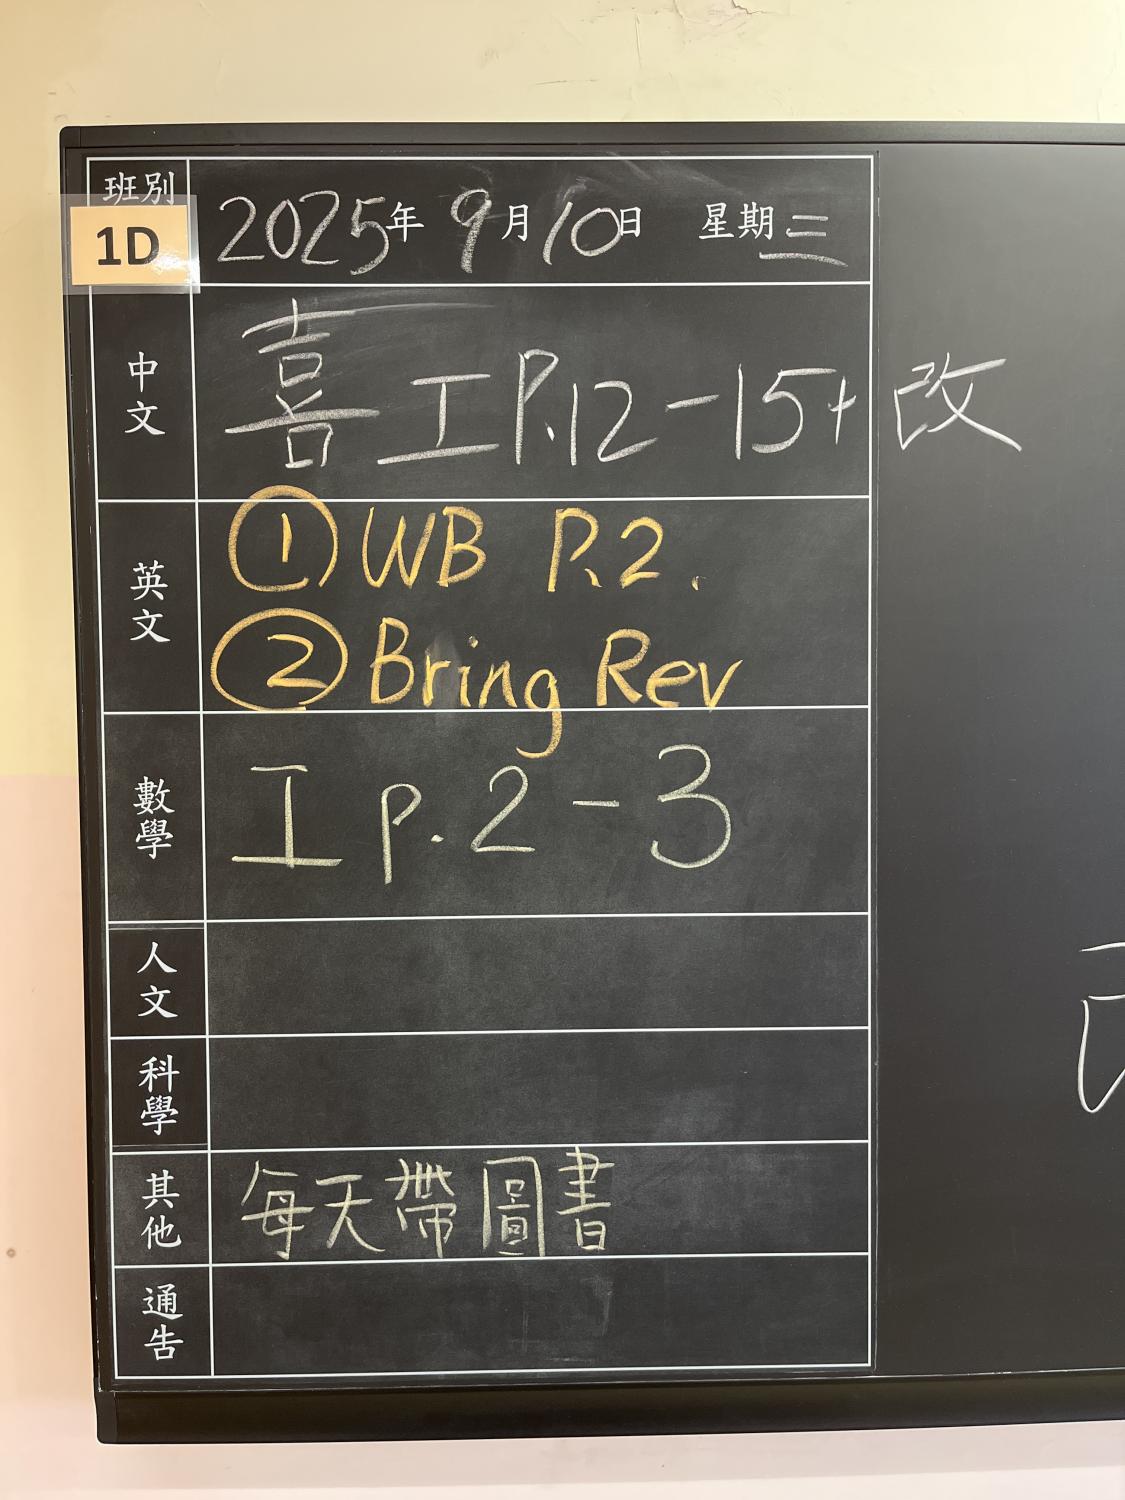 班別
1D
2025年9月10日 星期三
中文
喜 工 P.12-15+改
英文
① WB P.2.
② Bring Rev
數學
工 p.2-3
人文
科學
其他
每天帶圖書
通告